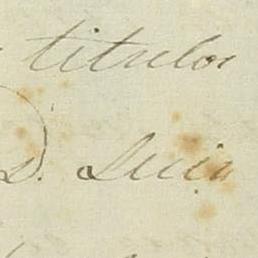 titulos
D. Luis